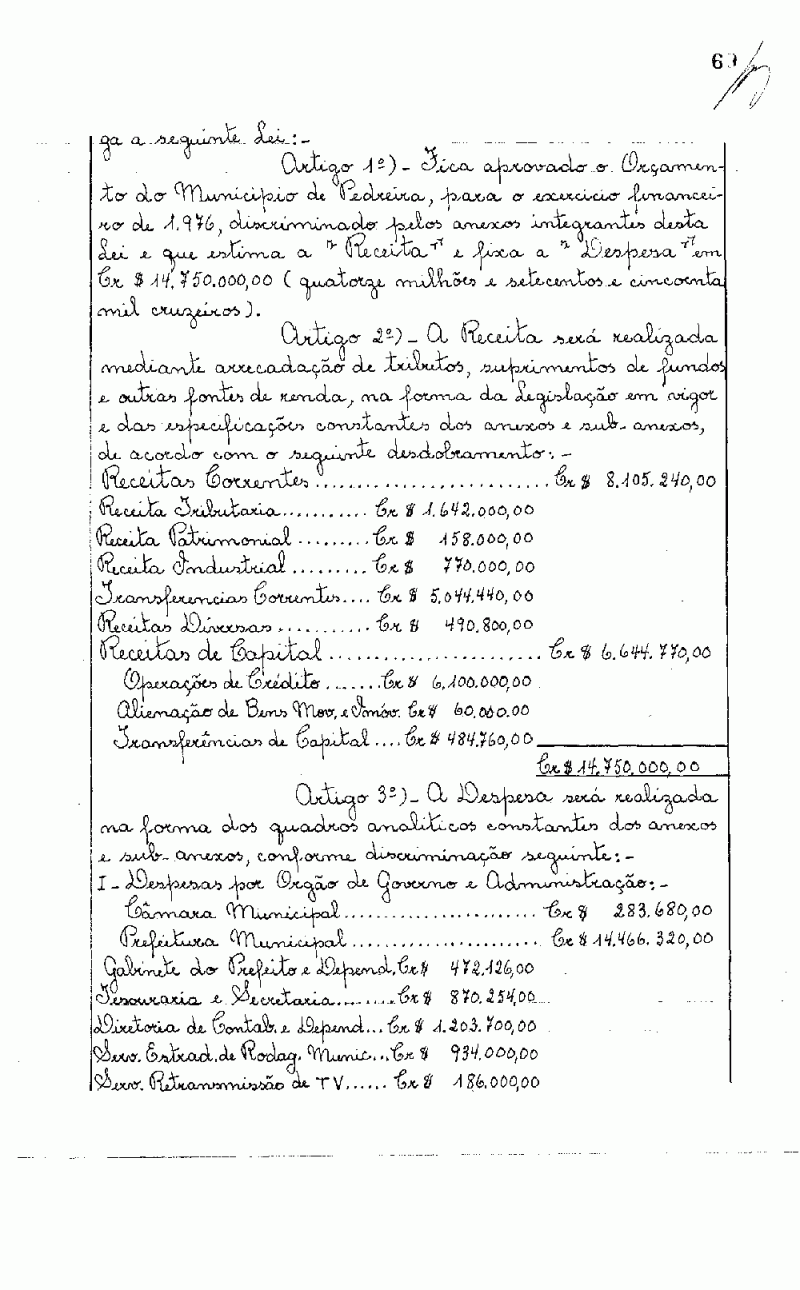 ga a seguinte Lei:-
Artigo 1º)- Fica aprovado o Orçamen-
to do Municipio de Pedreira, para o exercicio financei-
ro de 1.976, discriminado pelos anexos integrantes desta
Lei e que estima a "Receita" e fixa a "Despesa" em
Cr $ 14.750.000,00 (quatorze milhões e setecentos e cincoenta
mil cruzeiros).
Artigo 2º)- A Receita será realizada
mediante arrecadação de tributos, suprimentos de fundos
e outras fontes de renda, na forma da Legislação em vigor
e das especificações constantes dos anexos e sub-anexos,
de acordo com o seguinte desdobramento:-
Receitas Correntes.......................... Cr $ 8.105.240,00
Receita Tributaria........... Cr $ 1.642.000,00
Receita Patrimonial ......... Cr $ 158.000,00
Receita Industrial ......... Cr $ 770.000,00
Transferencias Correntes.... Cr $ 5.044.440,00
Receitas Diversas ........... Cr $ 490.800,00
Receitas de Capital ....................... Cr $ 6.644.770,00
Operações de Crédito ....... Cr $ 6.100.000,00
Alienação de Bens Mov. e Imóv. Cr $ 60.000.00
Transferências de Capital .... Cr $ 484.760,00
Cr $ 14.750.000,00
Artigo 3º)- A Despesa será realizada
na forma dos quadros analiticos constantes dos anexos
e sub-anexos, conforme discriminação seguinte:-
I- Despesas por Orgão de Governo e Administração:-
Câmara Municipal....................... Cr $ 283.680,00
Prefeitura Municipal...................... Cr $ 14.466.320,00
Gabinete do Prefeito e Depend. Cr $ 472.126,00
Tesouraria e Secretaria........ Cr $ 870.254,00
Diretoria de Contab. e Depend... Cr $ 1.203.700,00
Serv. Estrad. de Rodag. Munic... Cr $ 934.000,00
Serv. Retransmissão de TV...... Cr $ 186.000,00